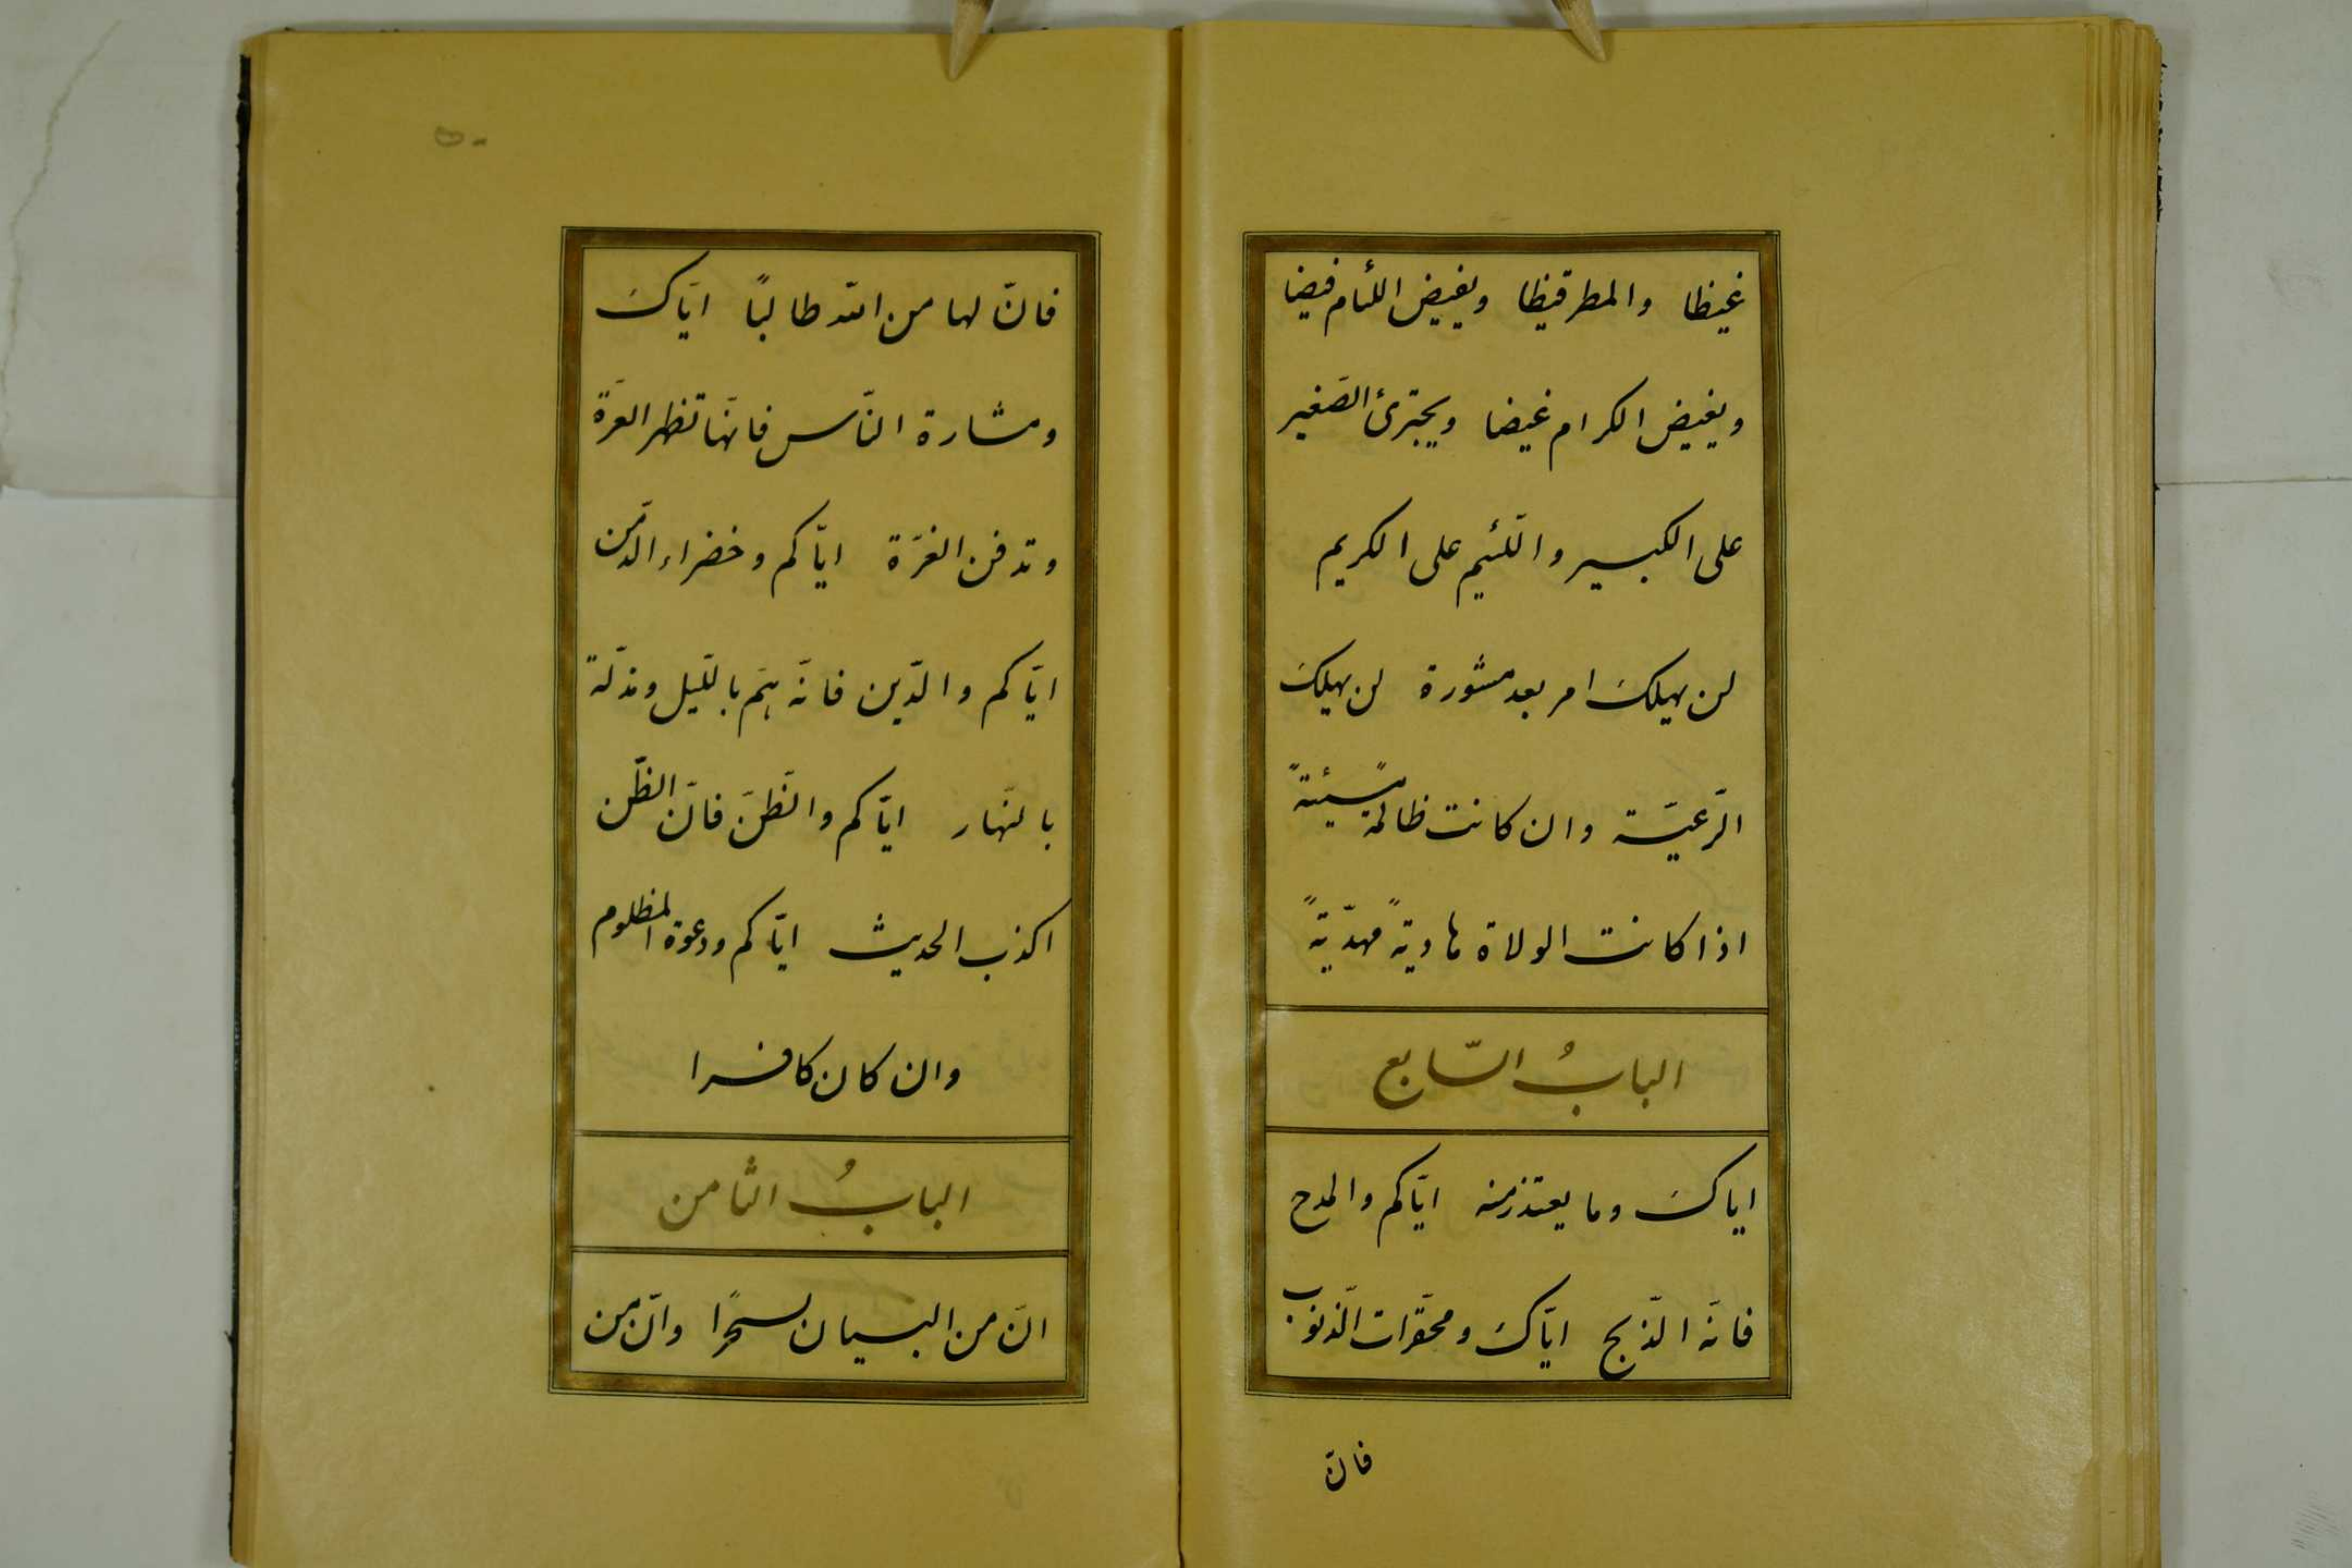 غيظا والمطر قيظا ويفيض اللئام فيضا
ويغيض الكرام غيضا ويجترئ الصّغير
على الكبير واللّئيم على الكريم
لن يهلكَ امر بعد مشورة لن يهلكَ
الرّعيّة وان كانت ظالمة مسيئةً
اذا كانت الولاة هاديةً مهديّةً
البابُ السّابع
اياكَ وما يعتذر منه ايّاكم والمدح
فانّه الذّبح ايّاكَ ومحقّرات الذّنوب
فانّ
فانّ لها من الله طالبًا ايّاكَ
ومشارة النّاس فانّها تظهر العرّة
وتدفن الغرّة ايّاكم وخضراء الدّمن
ايّاكم والدّين فانّه همّ بالليل ومذلّة
بالنّهار ايّاكم والظّنّ فانّ الظّن
اكذب الحديث ايّاكم ودعوة المظلوم
وان كان كافرا
البابُ الثامن
انّ من البيان لسحرًا وانّ من